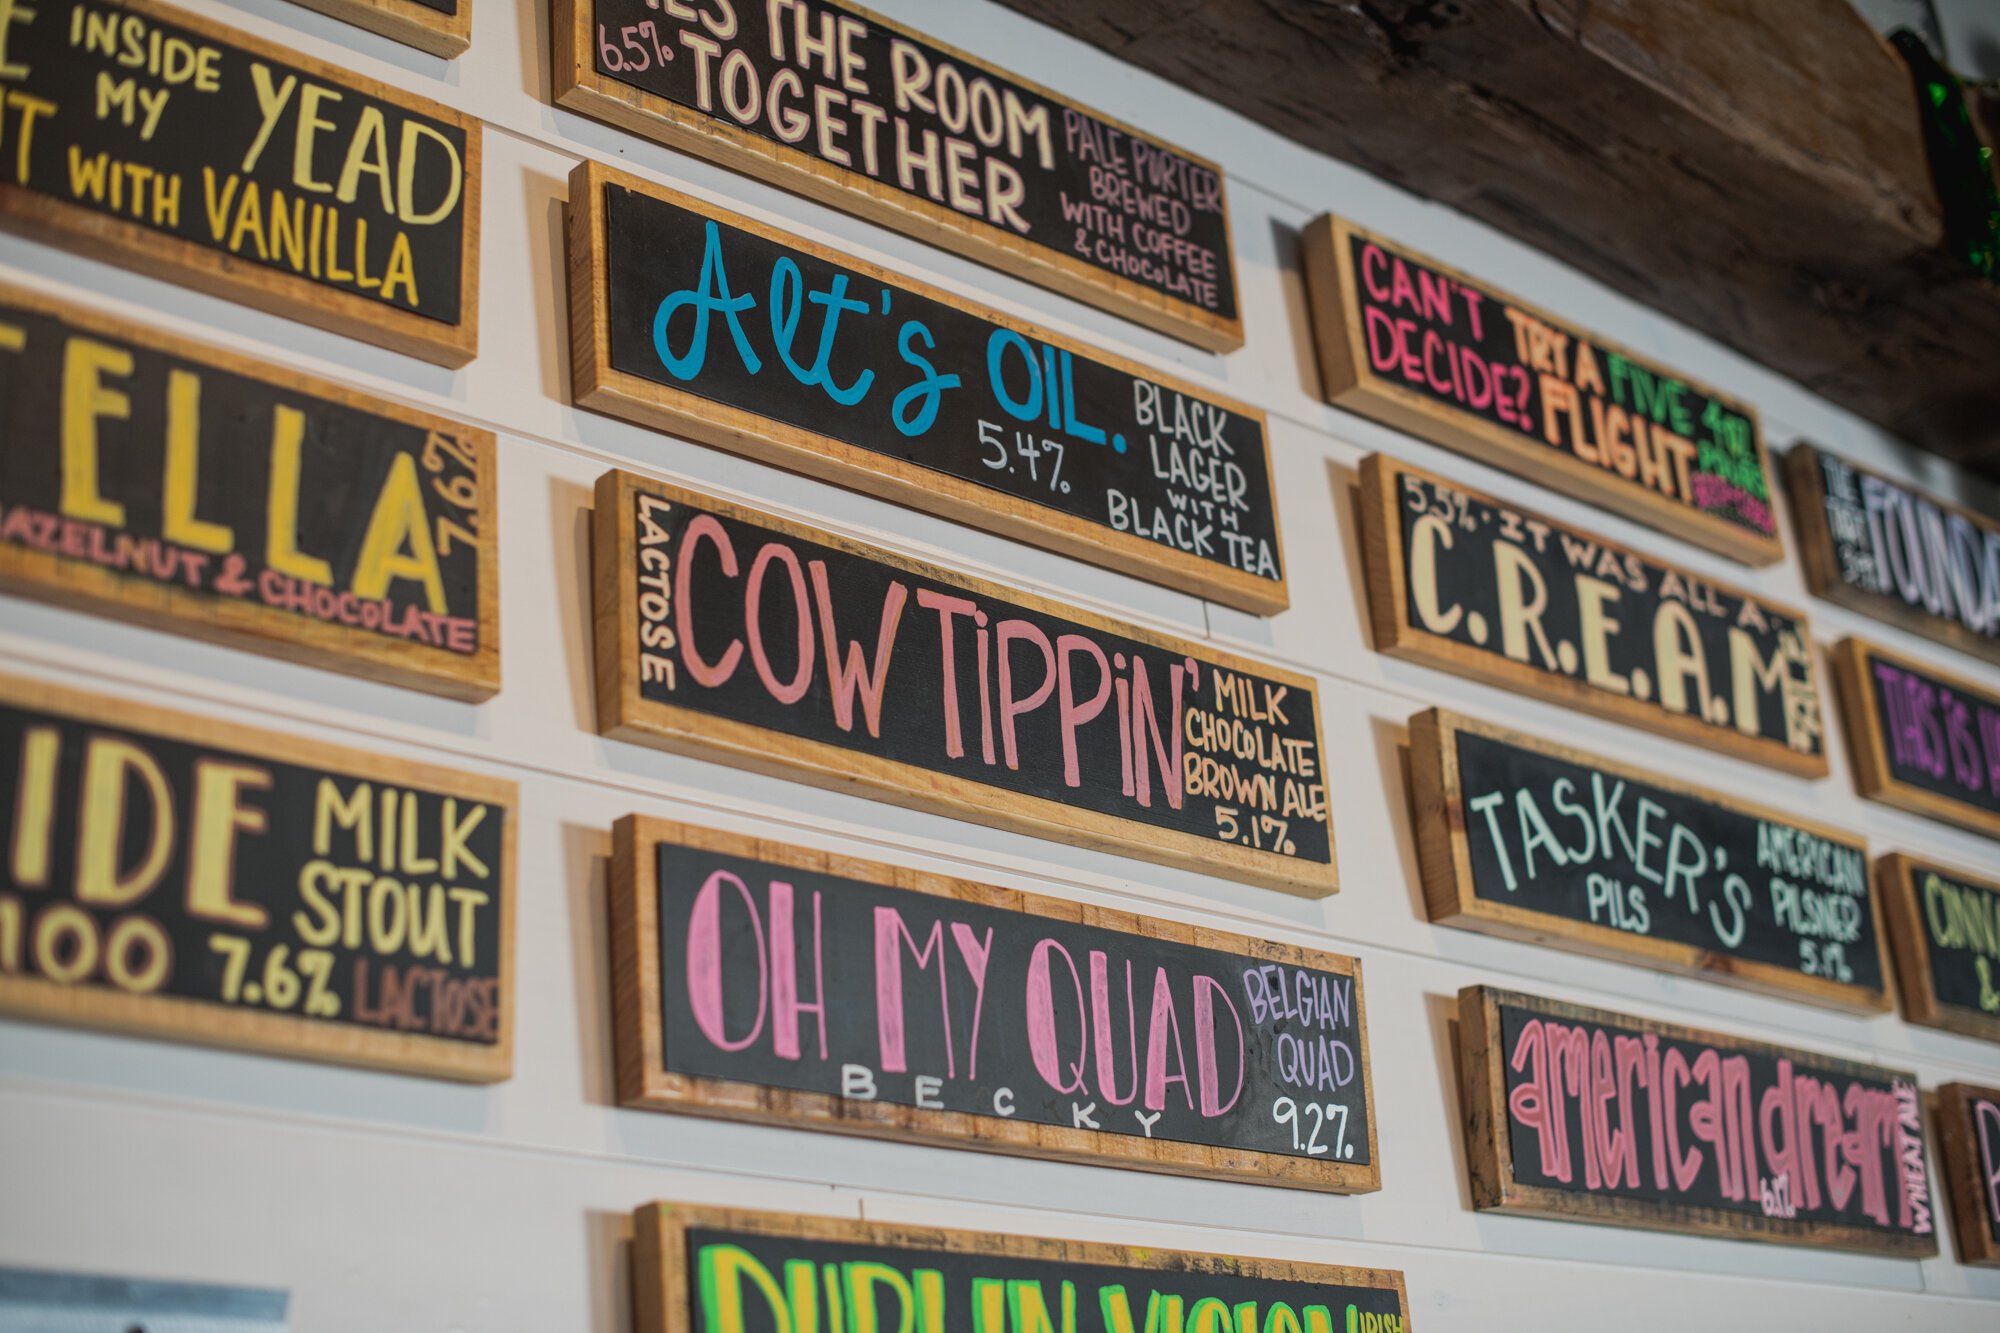 INSIDE
MY
YEAD
WITH VANILLA
ELLA
7.6%
HAZELNUT & CHOCOLATE
IDE
100
MILK
STOUT
7.6%
LACTOSE
THE ROOM
6.5%
TOGETHER
PALE PORTER
BREWED
WITH COFFEE
& CHOCOLATE
Alt's OIL.
5.4%
BLACK
LAGER
WITH
BLACK TEA
LACTOSE
COW TiPPiN'
MILK
CHOCOLATE
BROWN ALE
5.1%
OH MY QUAD
BECKY
BELGIAN
QUAD
9.2%
DUBLIN VISION
IRISH
CAN'T
DECIDE?
TRY A
FLIGHT
FIVE 4oz
POURS
5.5% · IT WAS ALL A
C.R.E.A.M
ALE
TASKER'S
PILS
AMERICAN
PILSNER
5.1%
american.dream
6.1%
WHEAT ALE
THIS IS
&